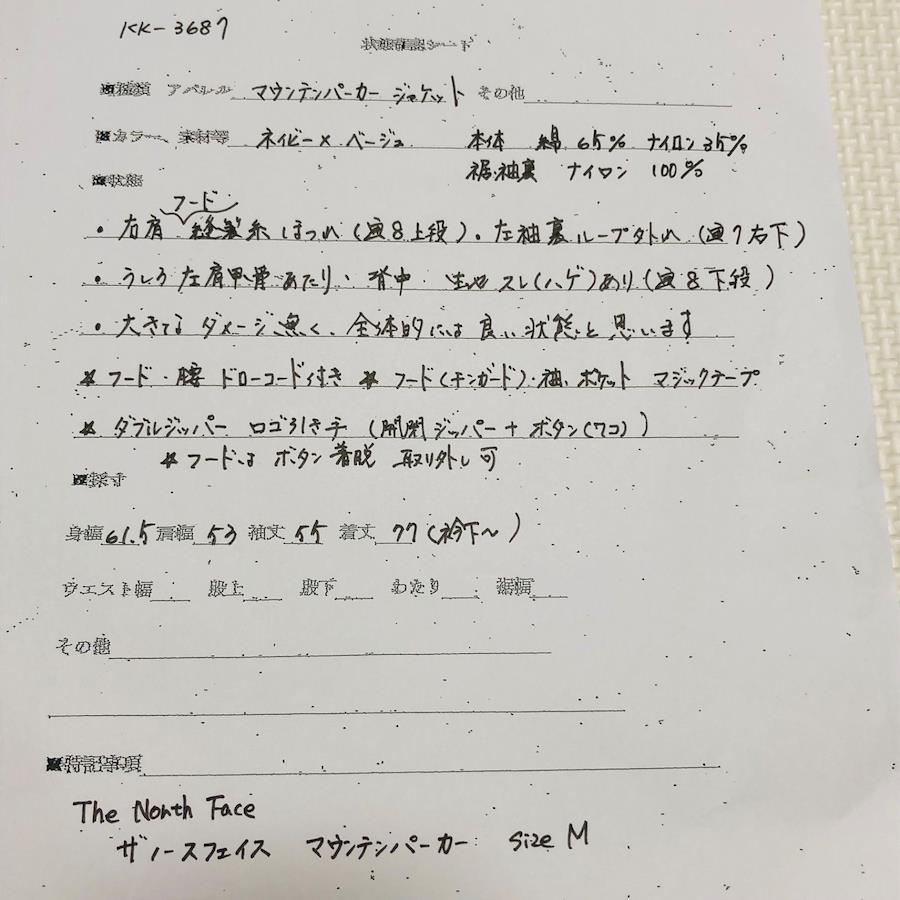 KK-3687
状態確認シート
■種類 アパレル マウンテンパーカー ジャケット その他
■カラー、素材等 ネイビー×ベージュ 本体 綿 65% ナイロン 35%
裾.袖裏 ナイロン 100%
■状態
フード
・右肩 縫製糸 ほつれ (画8上段)・左袖裏 ループ外れ (画7右下)
・うしろ 左肩甲骨あたり・背中・生地 スレ(ハゲ)あり(画8下段)
・大きなダメージ無く、全体的には良い状態と思います
* フード・腰 ドローコード付き * フード(チンガード)・袖.ポケット マジックテープ
* ダブルジッパー ロゴ引き手 (開閉ジッパー+ボタン(7コ))
* フードは ボタン着脱 取り外し可
■採寸
身幅61.5 肩幅 53 袖丈 55 着丈 77(衿下~)
ウエスト幅 股上 股下 わたり 裾幅
その他
■特記事項
The North Face
ザノースフェイス マウンテンパーカー size M